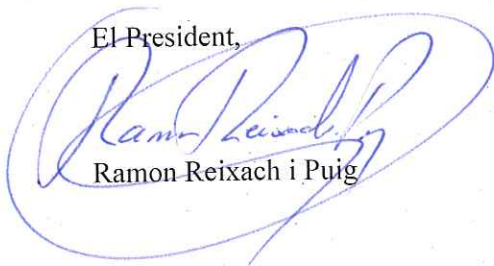 El President,
Ramon Reixach P
Ramon Reixach i Puig